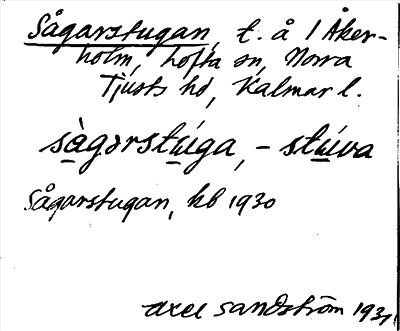 Sågarstugan, t. å 1 Åker-
holm, Lofta sn, Norra
Tjusts hd, Kalmar l.
sàgərstúga, - stúva
Sågarstugan, kb 1930
Axel Sandström 1931